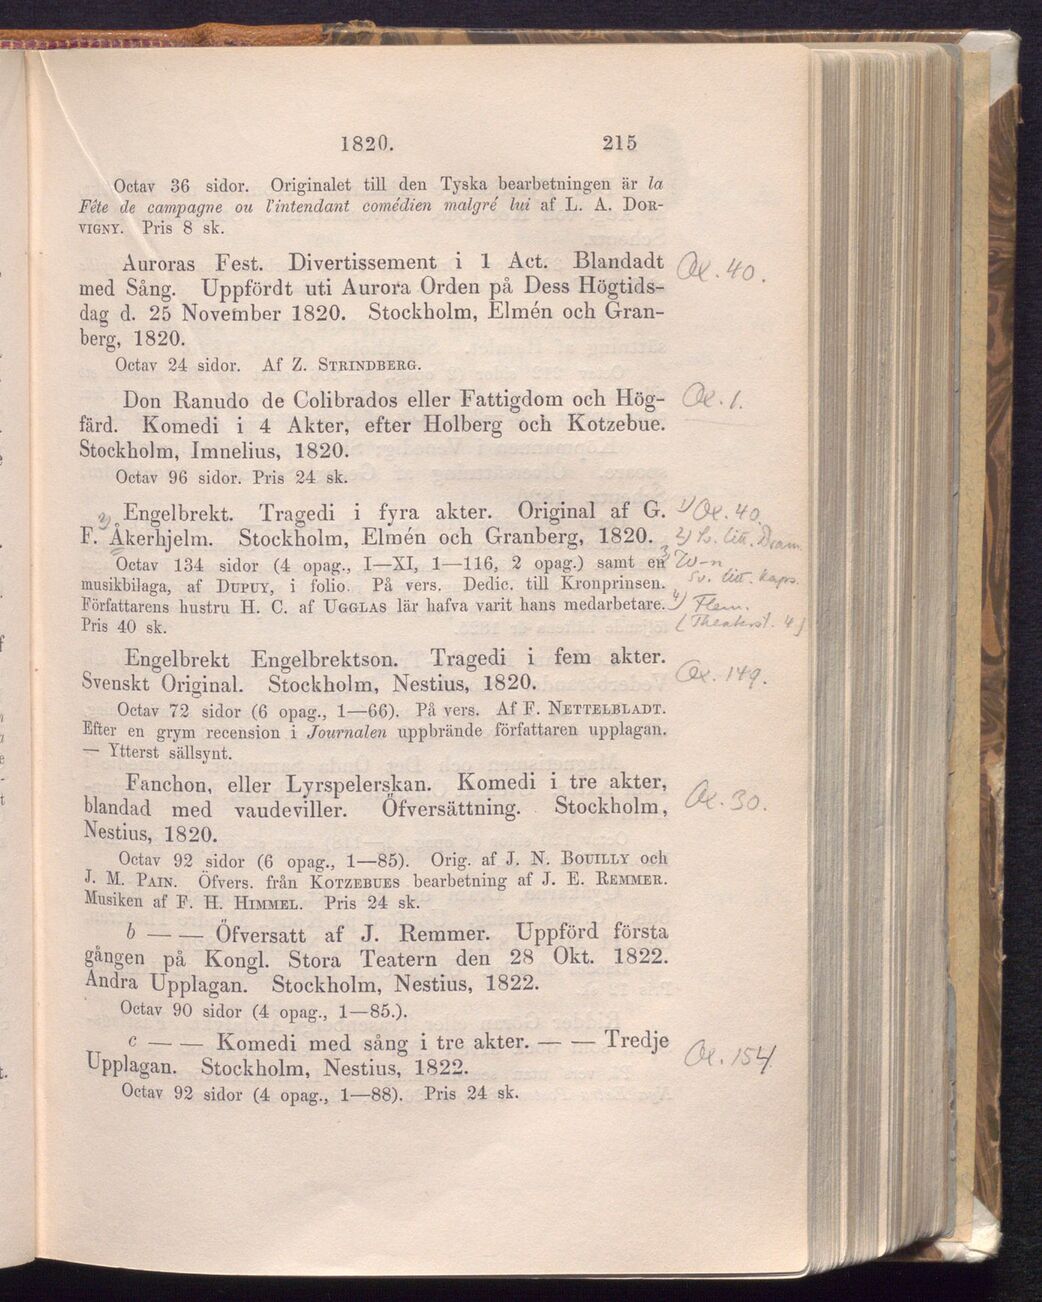 1820. 215
Octav 36 sidor. Originalet till den Tyska bearbetningen är la
Fête de campagne ou l'intendant comédien malgré lui af L. A. Dor-
vigny. Pris 8 sk.
Auroras Fest. Divertissement i 1 Act. Blandadt Ox. 40.
med Sång. Uppfördt uti Aurora Orden på Dess Högtids-
dag d. 25 November 1820. Stockholm, Elmén och Gran-
berg, 1820.
Octav 24 sidor. Af Z. Strindberg.
Don Ranudo de Colibrados eller Fattigdom och Hög- Ox. 1.
färd. Komedi i 4 Akter, efter Holberg och Kotzebue.
Stockholm, Imnelius, 1820.
Octav 96 sidor. Pris 24 sk.
Engelbrekt. Tragedi i fyra akter. Original af G. 1) Ox. 40
F. Åkerhjelm. Stockholm, Elmén och Granberg, 1820. 2) Sv. litt. Dram.
Octav 134 sidor (4 opag., I—XI, 1—116, 2 opag.) samt en 3)
musikbilaga, af Dupuy, i folio. På vers. Dedic. till Kronprinsen. Sv. litt.
Författarens hustru H. C. af Ugglas lär hafva varit hans medarbetare. 4) Flem.
Pris 40 sk.
Engelbrekt Engelbrektson. Tragedi i fem akter. Ox. 149.
Svenskt Original. Stockholm, Nestius, 1820.
Octav 72 sidor (6 opag., 1—66). På vers. Af F. Nettelbladt.
Efter en grym recension i Journalen uppbrände författaren upplagan.
— Ytterst sällsynt.
Fanchon, eller Lyrspelerskan. Komedi i tre akter, Ox. 30.
blandad med vaudeviller. Öfversättning. Stockholm,
Nestius, 1820.
Octav 92 sidor (6 opag., 1—85). Orig. af J. N. Bouilly och
J. M. Pain. Öfvers. från Kotzebues bearbetning af J. E. Remmer.
Musiken af F. H. Himmel. Pris 24 sk.
b — — Öfversatt af J. Remmer. Uppförd första
gången på Kongl. Stora Teatern den 28 Okt. 1822.
Andra Upplagan. Stockholm, Nestius, 1822.
Octav 90 sidor (4 opag., 1—85.).
c — — Komedi med sång i tre akter. — — Tredje Ox. 154
Upplagan. Stockholm, Nestius, 1822.
Octav 92 sidor (4 opag., 1—88). Pris 24 sk.